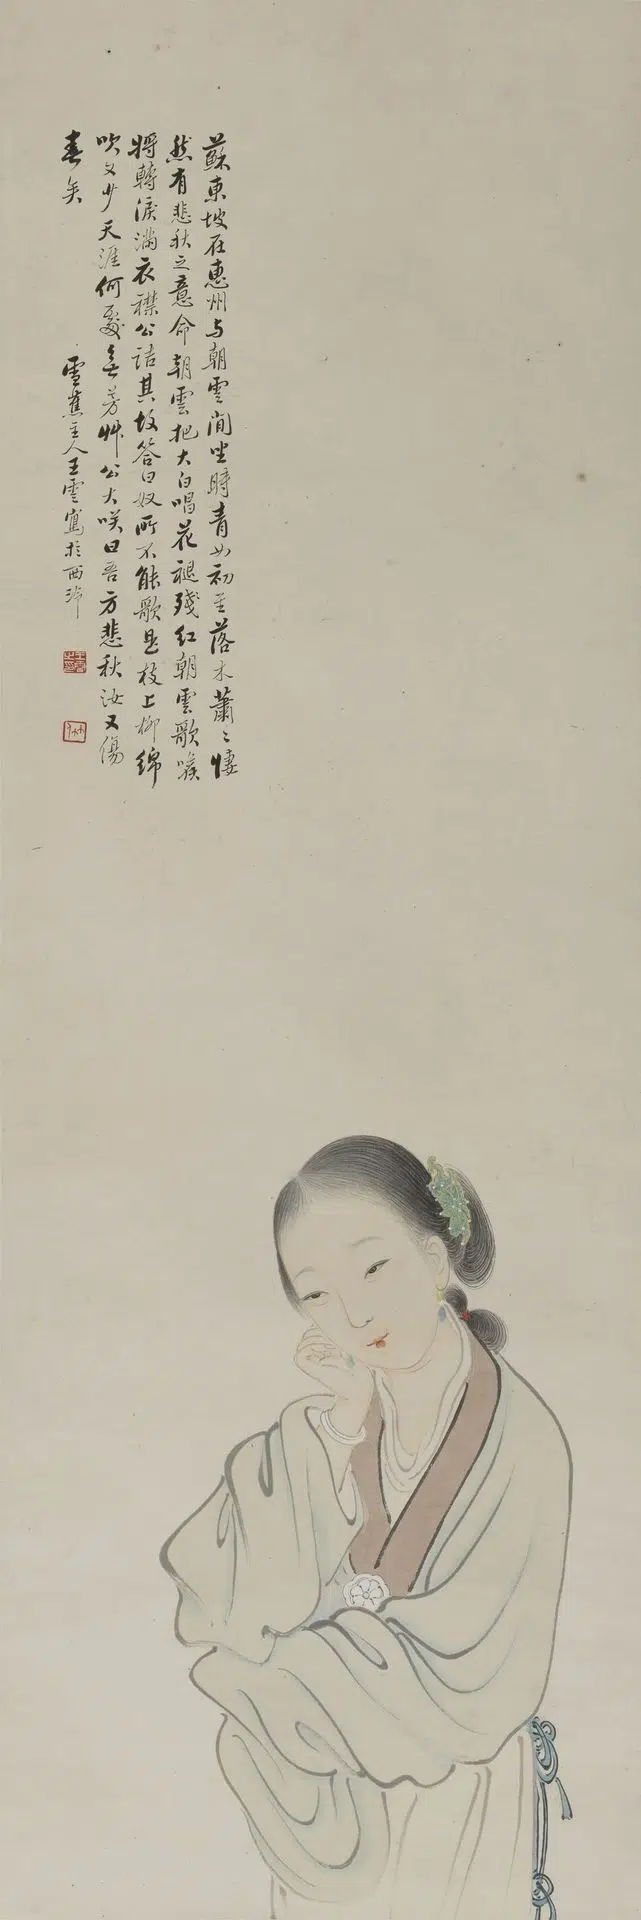 蘇東坡在惠州与朝雲閒坐時青女初至落木蕭〻悽
然有悲秋之意命朝雲把大白唱花褪殘紅朝雲歌喉
將轉淚滿衣襟公詰其故答曰奴所不能歌是枝上柳綿
吹又少天涯何處無芳艸公大咲曰吾方悲秋汝又傷
春矣
雪蕉主人王雲寫於西